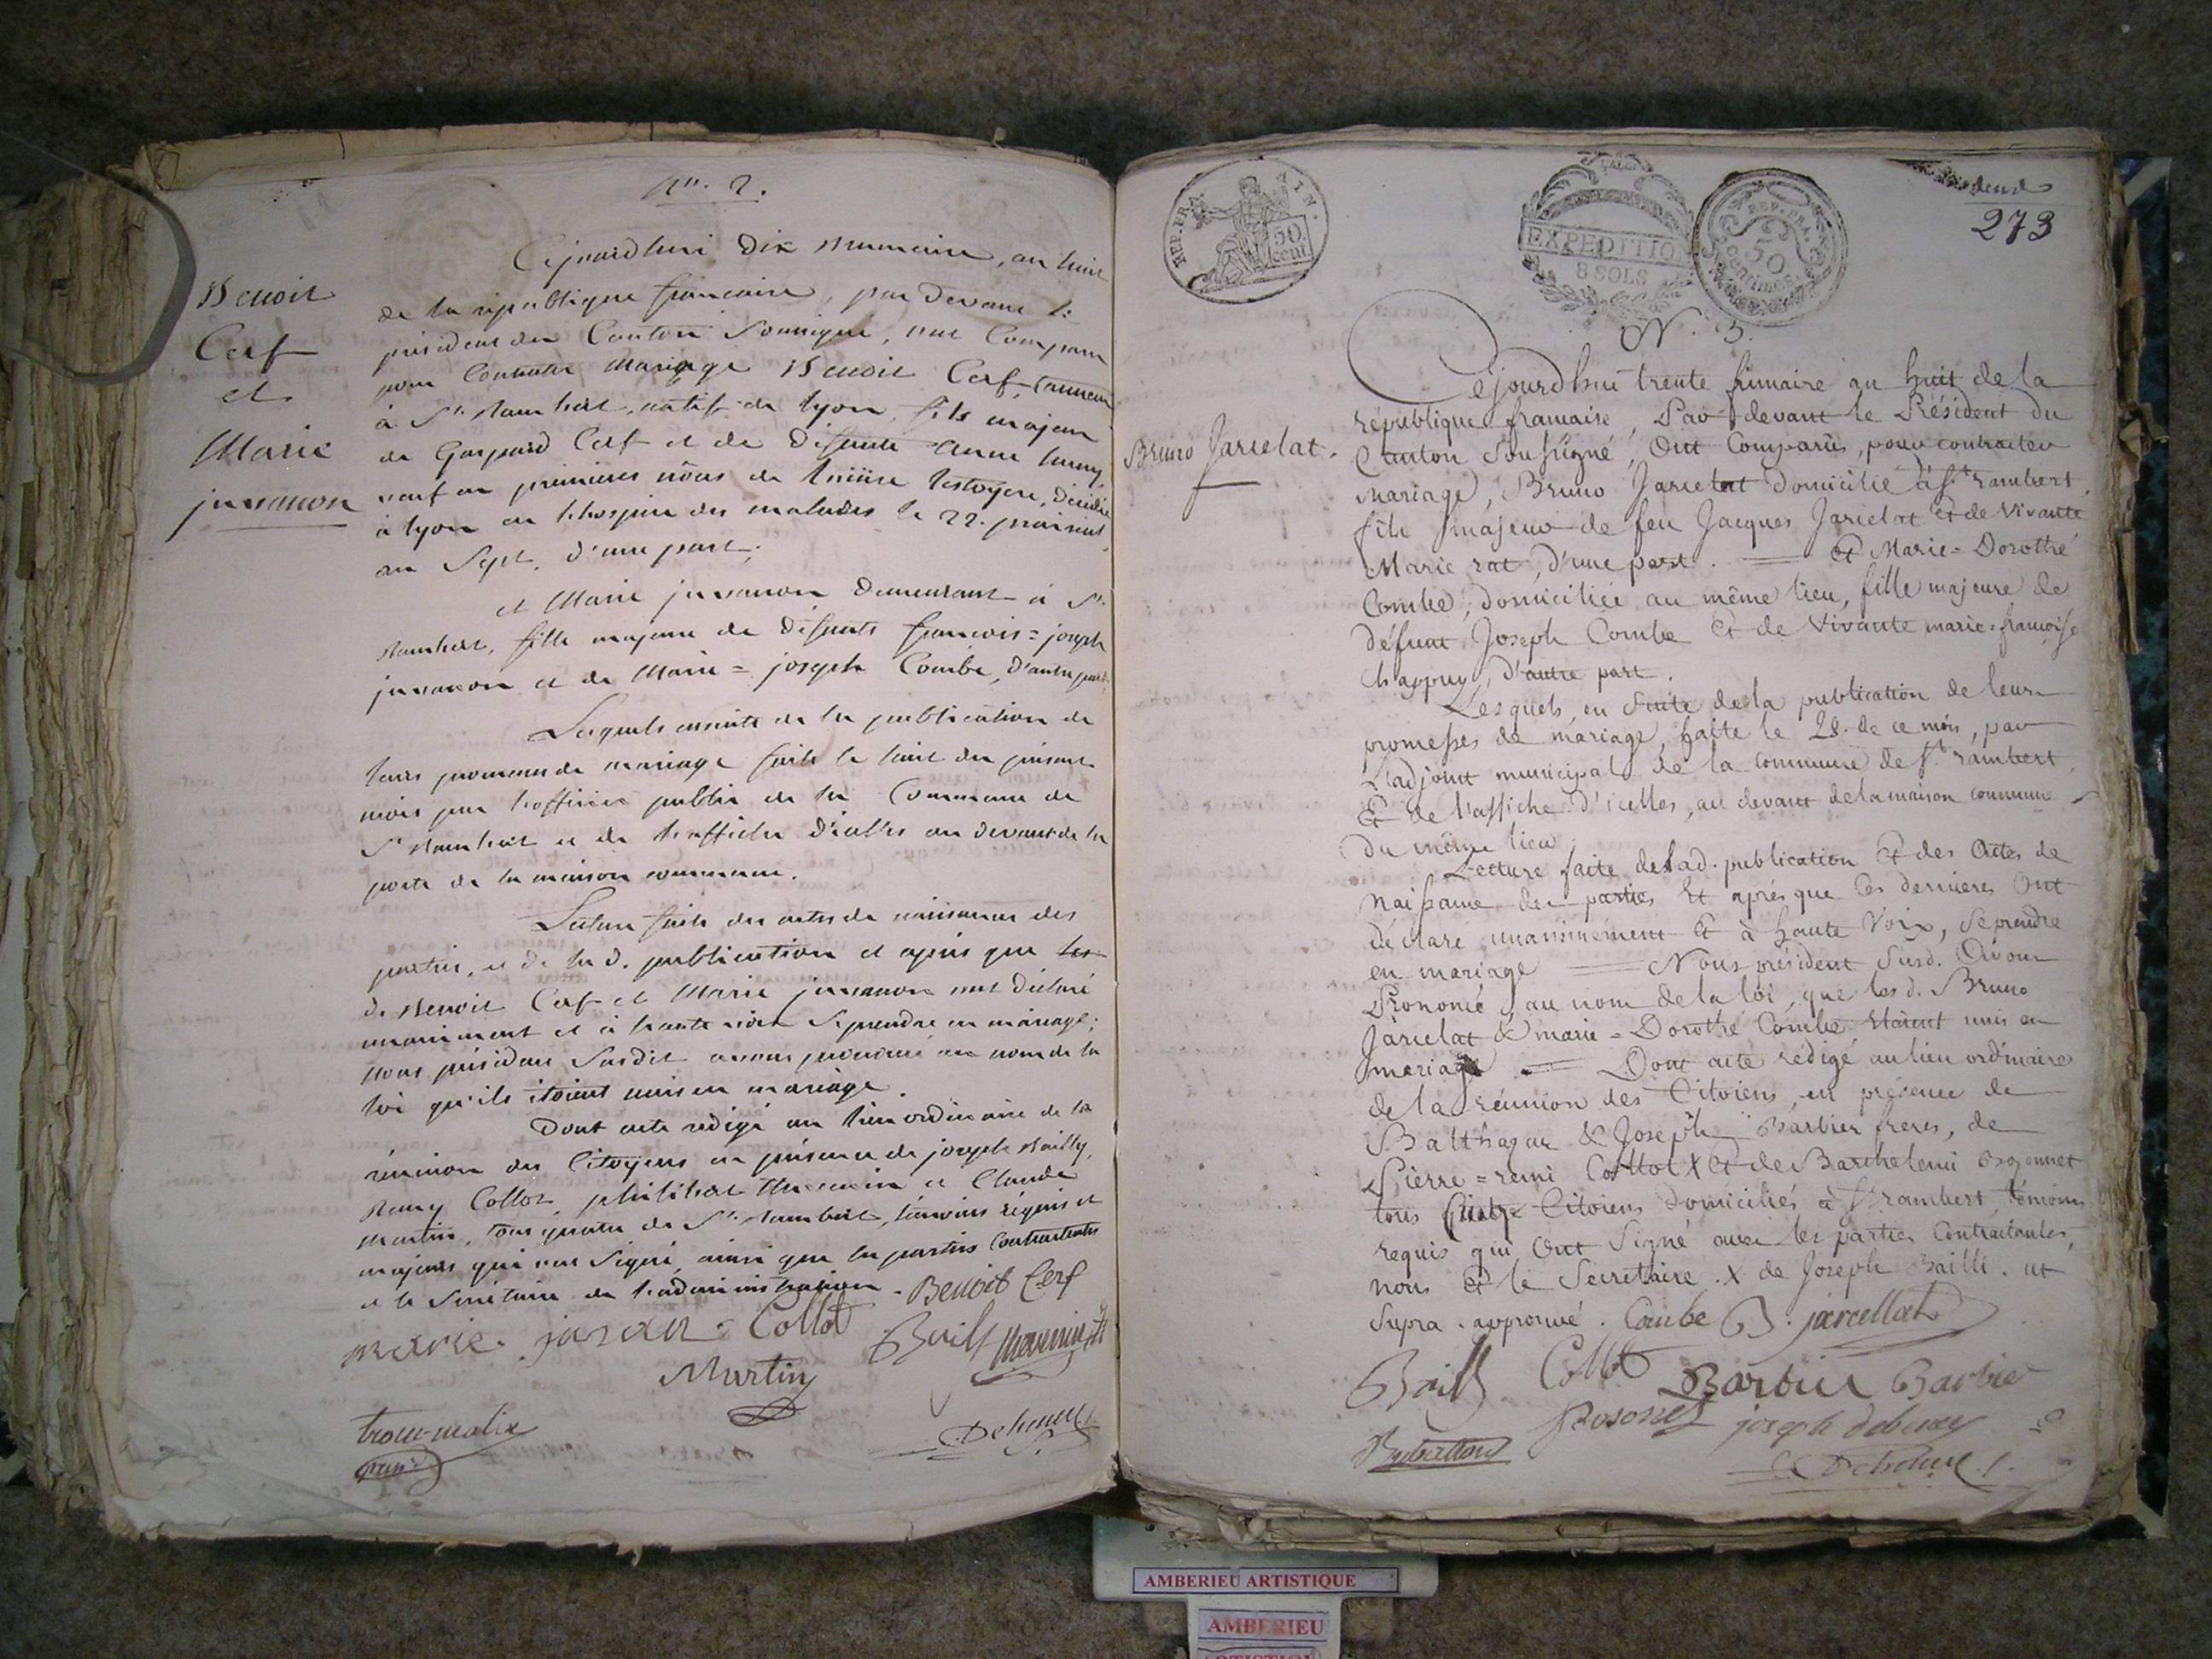 N°. 2.
Benoit
Cerf
et
Marie
juvanon
Cejourdhui dix brumaire, an huit
de la république francaise, par devant le
président du Canton soussigné, ont Comparu
pour Contracter mariage Benoit Cerf, tanneur
à St. Rambert, natif de lyon, fils majeur
de Gaspard Cerf et de défunte
veuf en premieres nôces de décédée
à lyon en l'hospice des malades le 22. prairial
an Sept, d'une part;
et Marie juvanon demeurant à St.
Rambert, fille majeure de défunts francois=joseph
juvanon et de Marie=joseph Combe, d'autre part.
Lesquels ensuite de la publication de
leurs promesses de mariage faite le huit du présent
mois par l'officier public de la Commune de
St Rambert et de l'affiche d'icelles au devant de la
porte de la maison commune.
Lecture faite des actes de naissance des
parties, et de lad. publication et après que les
d. Benoit Cerf et Marie juvanon ont déclaré
unanimement et à haute voix se prendre en mariage;
nous président susdit avons prononcé au nom de la
loi qu'ils étoient unis en mariage.
Dont acte rédigé au lieu ordinaire de la
réunion des Citoyens en présence de joseph Bailly,
Remy Collot, philibert et Claude
Martin, tous quatre de St. Rambert, témoins requis et
majeurs qui ont signé, ainsi que les parties Contractantes
et le Secrétaire de l'administration. Benoit Cerf
marie. Collot Bailly
Martin
REP. FRA.
50
cent.
EXPEDITION
8 SOLS
REP. FRA.
50
Centimes
deux
273
N°. 3.
Bruno Jarcelat.
Cejourdhui trente frimaire an huit de la
république francaise, Par devant le Président du
Canton Soussigné, Ont Comparus, pour contracter
mariage, Bruno Jarcelat domicilié à St. rambert,
fils majeur de feu Jacques Jarcelat et de vivante
Marie rat, d'une part. = et Marie=Dorothé
Combe, domiciliée au même lieu, fille majeure de
défunt Joseph Combe et de Vivante marie=françoise
Chappuy, d'autre part.
Lesquels, en suite de la publication de leurs
promesses de mariage, faite le 28. de ce mois, par
L'adjoint municipal de la commune de St. rambert.
Et de l'affiche d'icelles, au devant de la maison commune
du même lieu
Lecture faite de lad. publication Et des Actes de
naissance des parties Et après que ces dernieres Ont
déclaré unanimement Et à haute Voix, se prendre
en mariage = Nous président susd. Avons
Prononcé, au nom de la loi, que les d. Bruno
Jarcelat & marie=Dorothé Combe étaient unis en
mariage = Dont acte rédigé au lieu ordinaire
de la réunion des Citoiens, en présence de
Balthazar & Joseph Barbier freres, de
Pierre=remi Collot X et de Barthelemi Bozonnet
tous Quatre Citoiens domiciliés à St. rambert, témoins
requis qui Ont Signé avec les parties Contractantes,
nous Et le Secretaire. X de Joseph Bailli. ut
Supra. approuvé. Combe B. jarcellat
Bailly Collot Barbier Barbier
Bosonnet joseph
AMBERIEU ARTISTIQUE
AMBERIEU
ARTISTIQUE